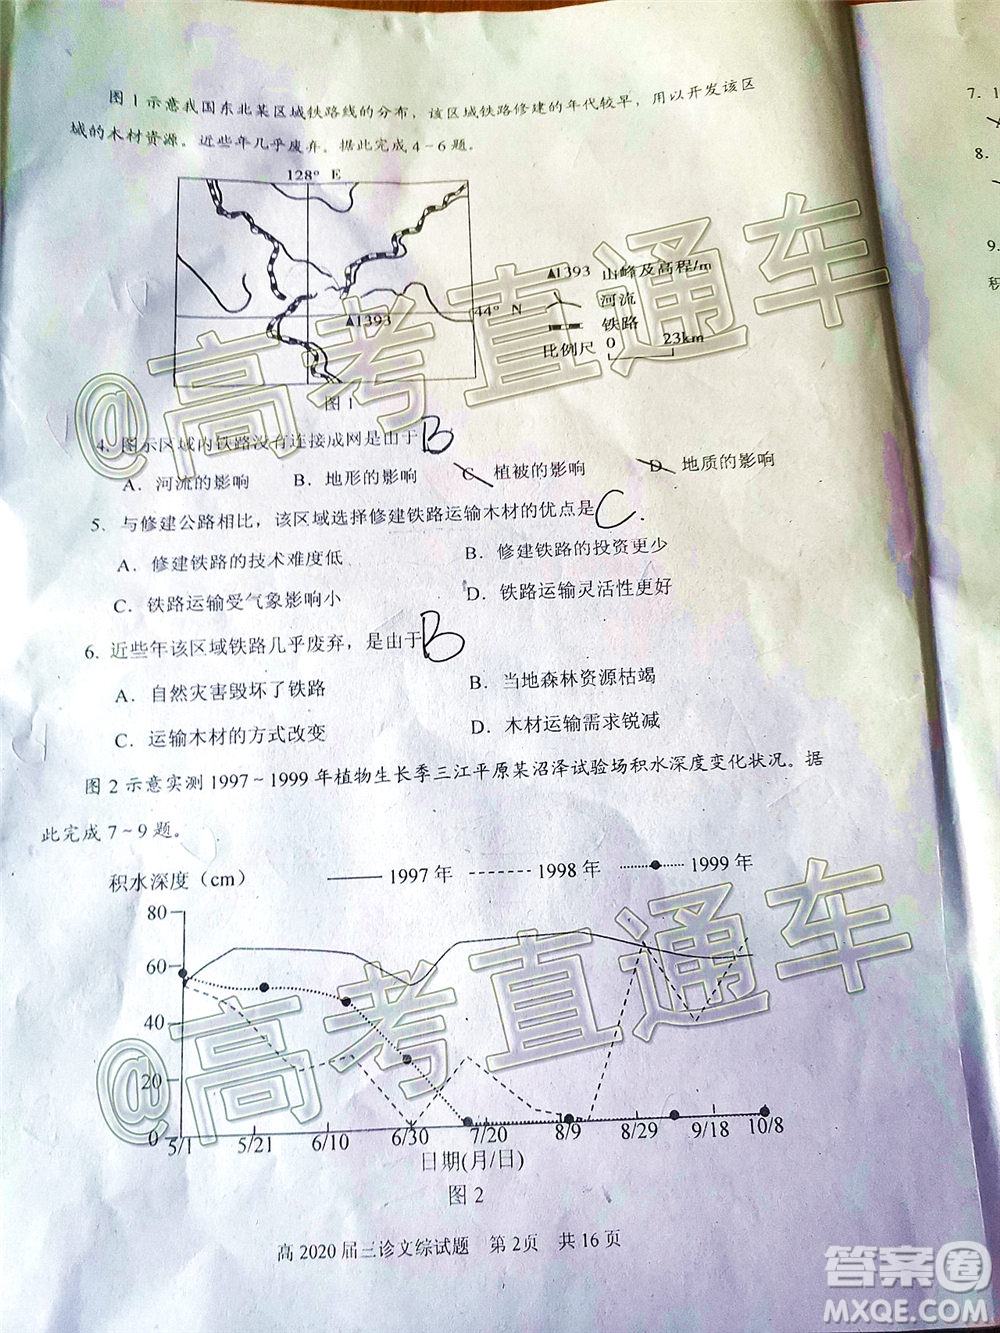 图 1 示意我国东北某区域铁路线的分布，该区域铁路修建的年代较早，用以开发该区
域的木材资源。近些年几乎废弃。据此完成 4～6 题。
128° E
▲1393
44° N
▲1393 山峰及高程/m
河流
铁路
比例尺 0 23km
图 1
4. 图示区域的铁路没有连接成网是由于 B
A．河流的影响 B．地形的影响 C．植被的影响 D．地质的影响
5．与修建公路相比，该区域选择修建铁路运输木材的优点是 C．
A．修建铁路的技术难度低 B．修建铁路的投资更少
C．铁路运输受气象影响小 D．铁路运输灵活性更好
6. 近些年该区域铁路几乎废弃，是由于 B
A．自然灾害毁坏了铁路 B．当地森林资源枯竭
C．运输木材的方式改变 D．木材运输需求锐减
图 2 示意实测 1997～1999 年植物生长季三江平原某沼泽试验场积水深度变化状况。据
此完成 7～9 题。
积水深度（cm） 1997 年 1998 年 1999 年
80
60
40
20
0
5/1 5/21 6/10 6/30 7/20 8/9 8/29 9/18 10/8
日期(月/日)
图 2
高 2020 届三诊文综试题 第 2页 共 16 页
7. 1
8.
9.
积
@高考直通车
@高考直通车
答案圈
MXQE.COM